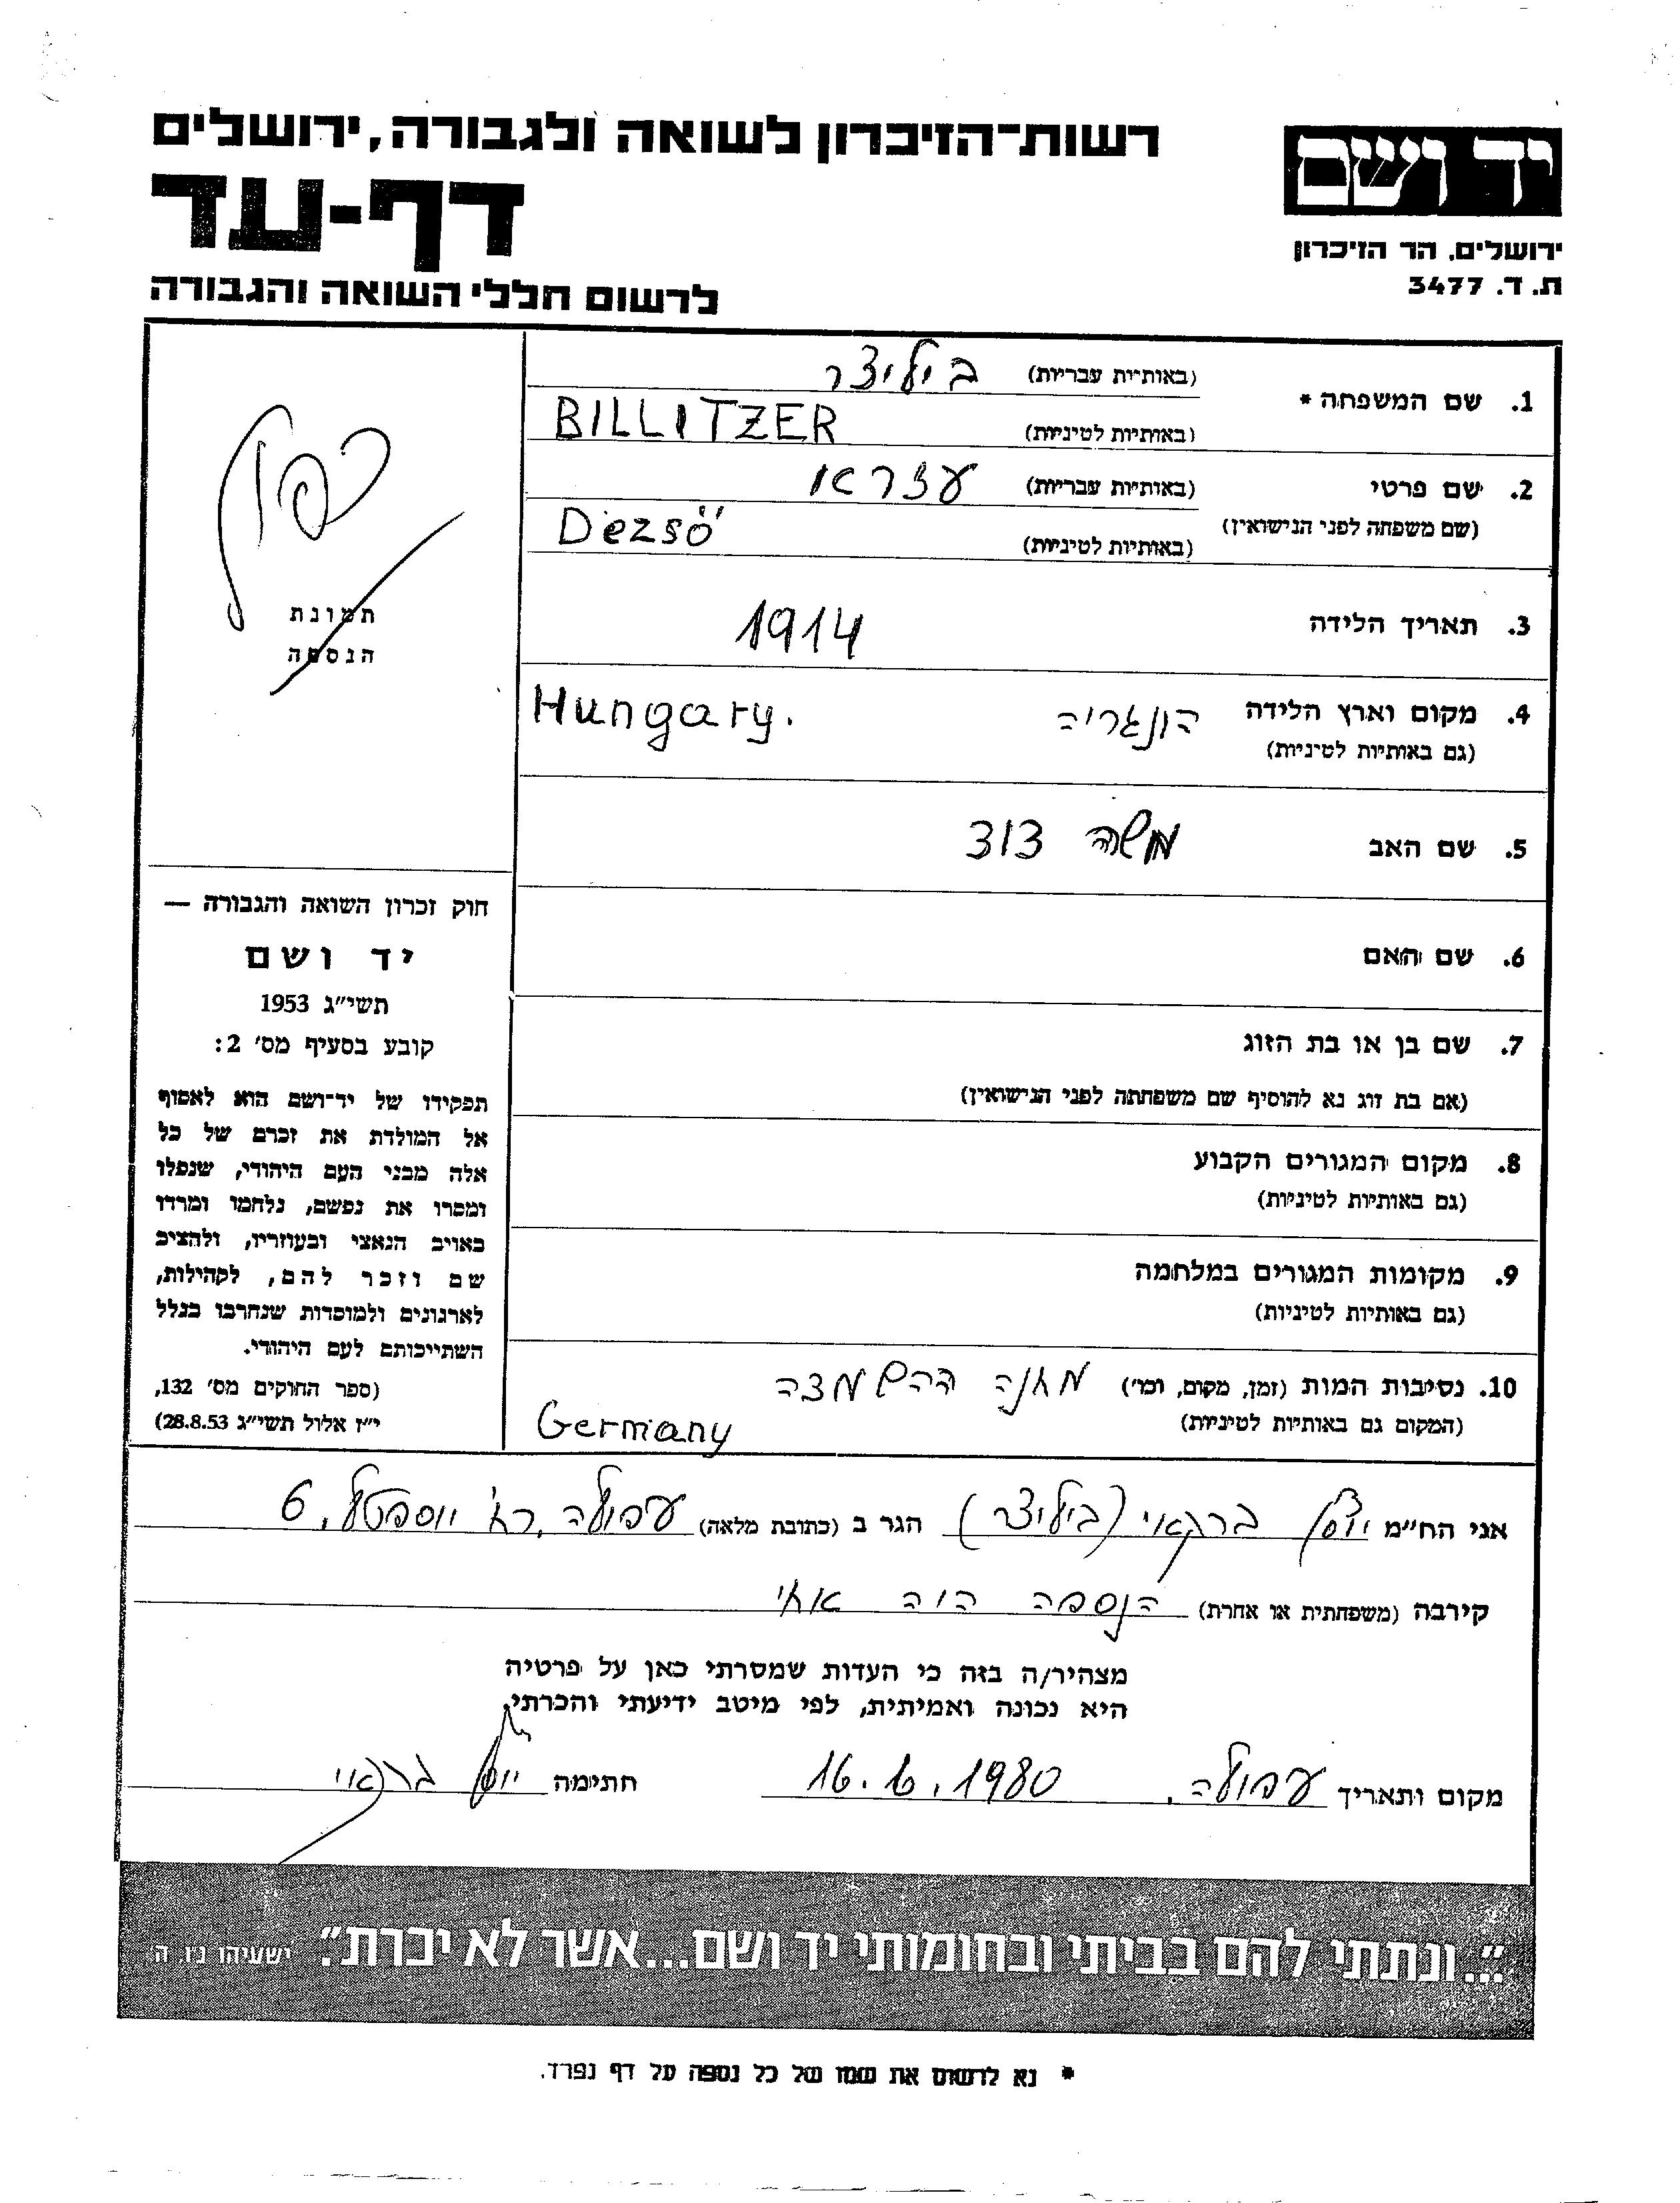 רשות־הזיכרון לשואה ולגבורה, ירושלים
דף-עד
לרשום חללי השואה והגבורה
יד ושם
ירושלים. הר הזיכרון
ת. ד. 3477
1. שם המשפחה *
(באותיות עבריות) ביליצר
(באותיות לטיניות) BILLITZER
2. שם פרטי
(שם משפחה לפני הנישואין)
(באותיות עבריות) עזרא
(באותיות לטיניות) Dezső
3. תאריך הלידה 1914
4. מקום וארץ הלידה הונגריה Hungary.
(גם באותיות לטיניות)
5. שם האב משה דוד
6. שם האם
7. שם בן או בת הזוג
(אם בת זוג נא להוסיף שם משפחתה לפני הנישואין)
8. מקום המגורים הקבוע
(גם באותיות לטיניות)
9. מקומות המגורים במלחמה
(גם באותיות לטיניות)
10. נסיבות המות (זמן, מקום, וכו') מחנה ההשמדה
(המקום גם באותיות לטיניות) Germany
תמונת
הנספה
חוק זכרון השואה והגבורה —
יד ושם
תשי״ג 1953
קובע בסעיף מס׳ 2:
תפקידו של יד־ושם הוא לאסוף
אל המולדת את זכרם של כל
אלה מבני העם היהודי, שנפלו
ומסרו את נפשם, נלחמו ומרדו
באויב הנאצי ובעוזריו, ולהציב
שם וזכר להם, לקהילות,
לארגונים ולמוסדות שנחרבו בגלל
השתייכותם לעם היהודי.
(ספר החוקים מס׳ 132,
י״ז אלול תשי״ג 28.8.53)
אני הח״מ יוסף ברקאי (ביליצר) הגר ב (כתובת מלאה) עפולה, רח' יוספטל, 6
קירבה (משפחתית או אחרת) הנספה היה אחי
מצהיר/ה בזה כי העדות שמסרתי כאן על פרטיה
היא נכונה ואמיתית, לפי מיטב ידיעתי והכרתי.
מקום ותאריך עפולה, 16.6.1980 חתימה יוסף ברקאי
״...ונתתי להם בביתי ובחומותי יד ושם...אשר לא יכרת״. ישעיהו נ״ו, ה'
* נא לרשום את שמו של כל נספה על דף נפרד.